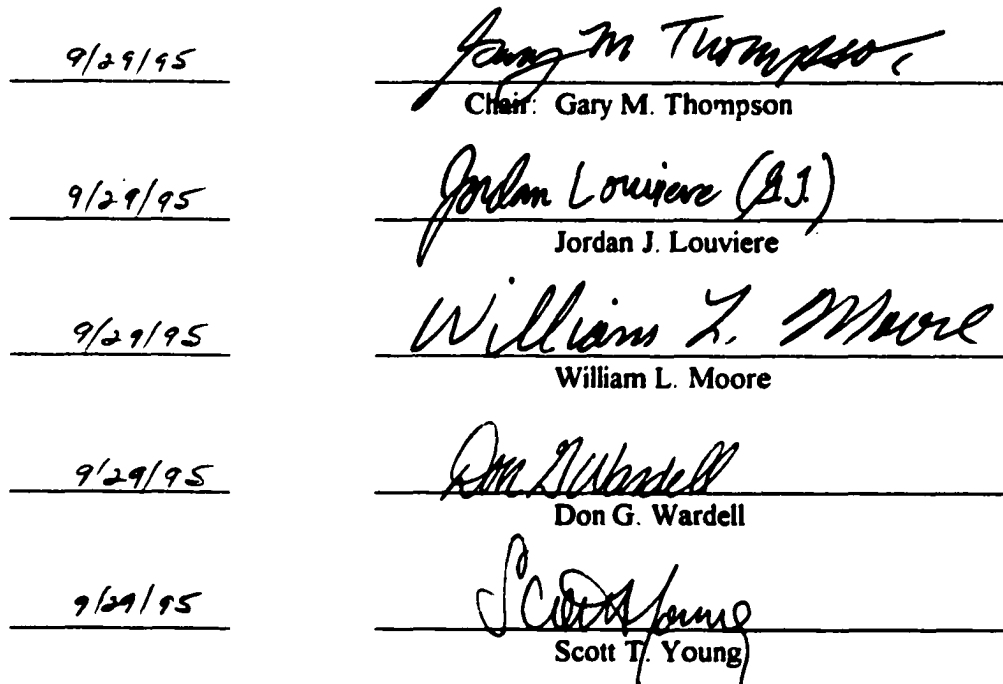 9/29/95 Gary M Thompson
Chair: Gary M. Thompson
9/29/95 Jordan Louviere (G.T.)
Jordan J. Louviere
9/29/95 William L. Moore
William L. Moore
9/29/95 Don G Wardell
Don G. Wardell
9/29/95 Scott Young
Scott T. Young